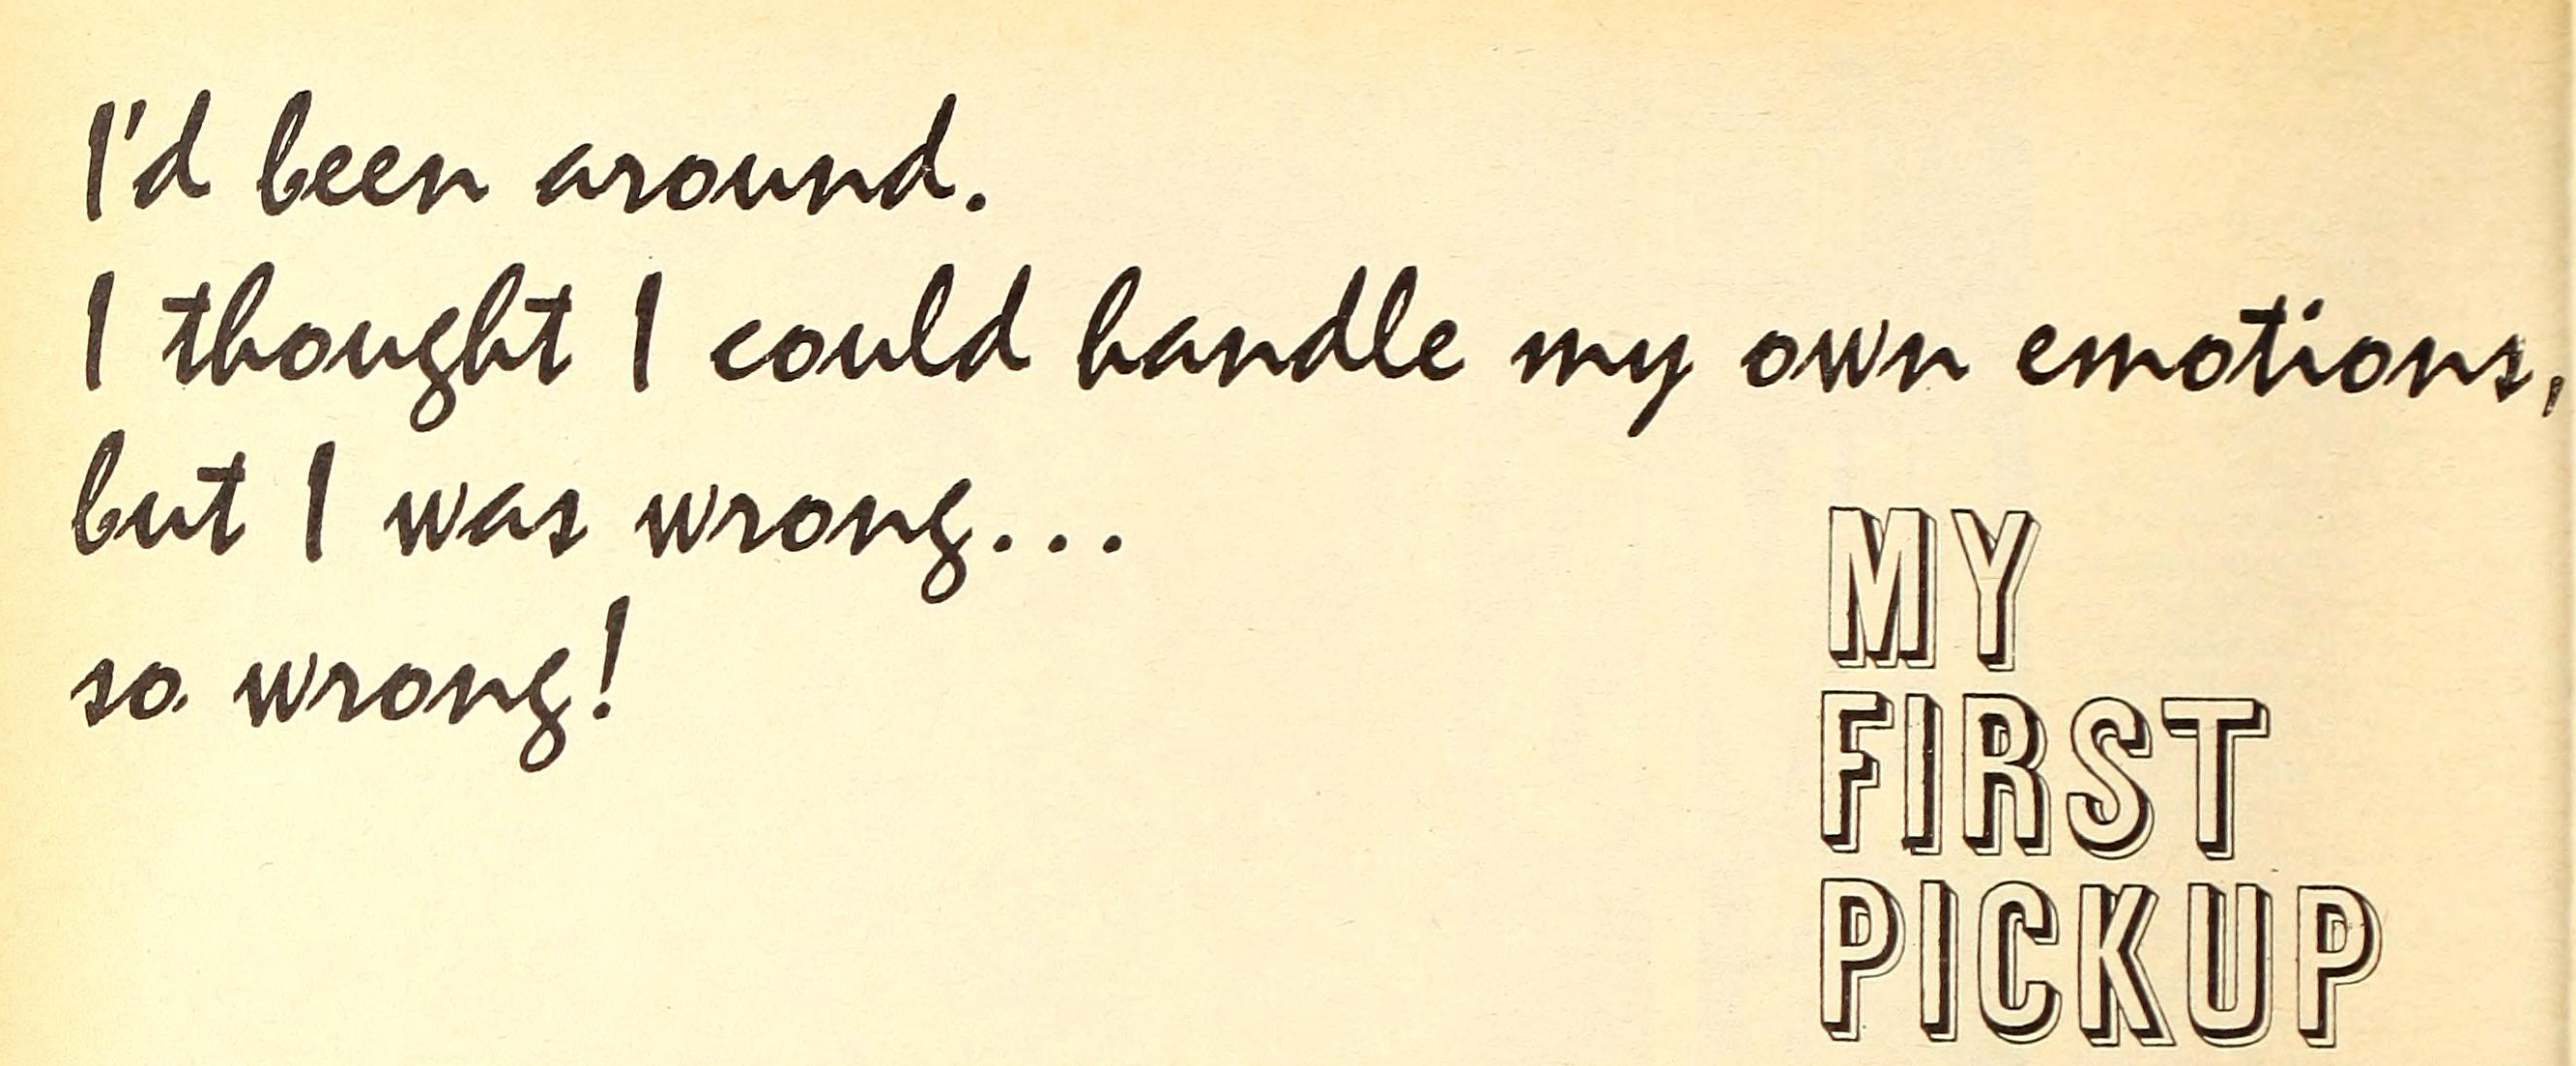 I'd been around.
I thought I could handle my own emotions,
but I was wrong...
so wrong!
MY
FIRST
PICKUP